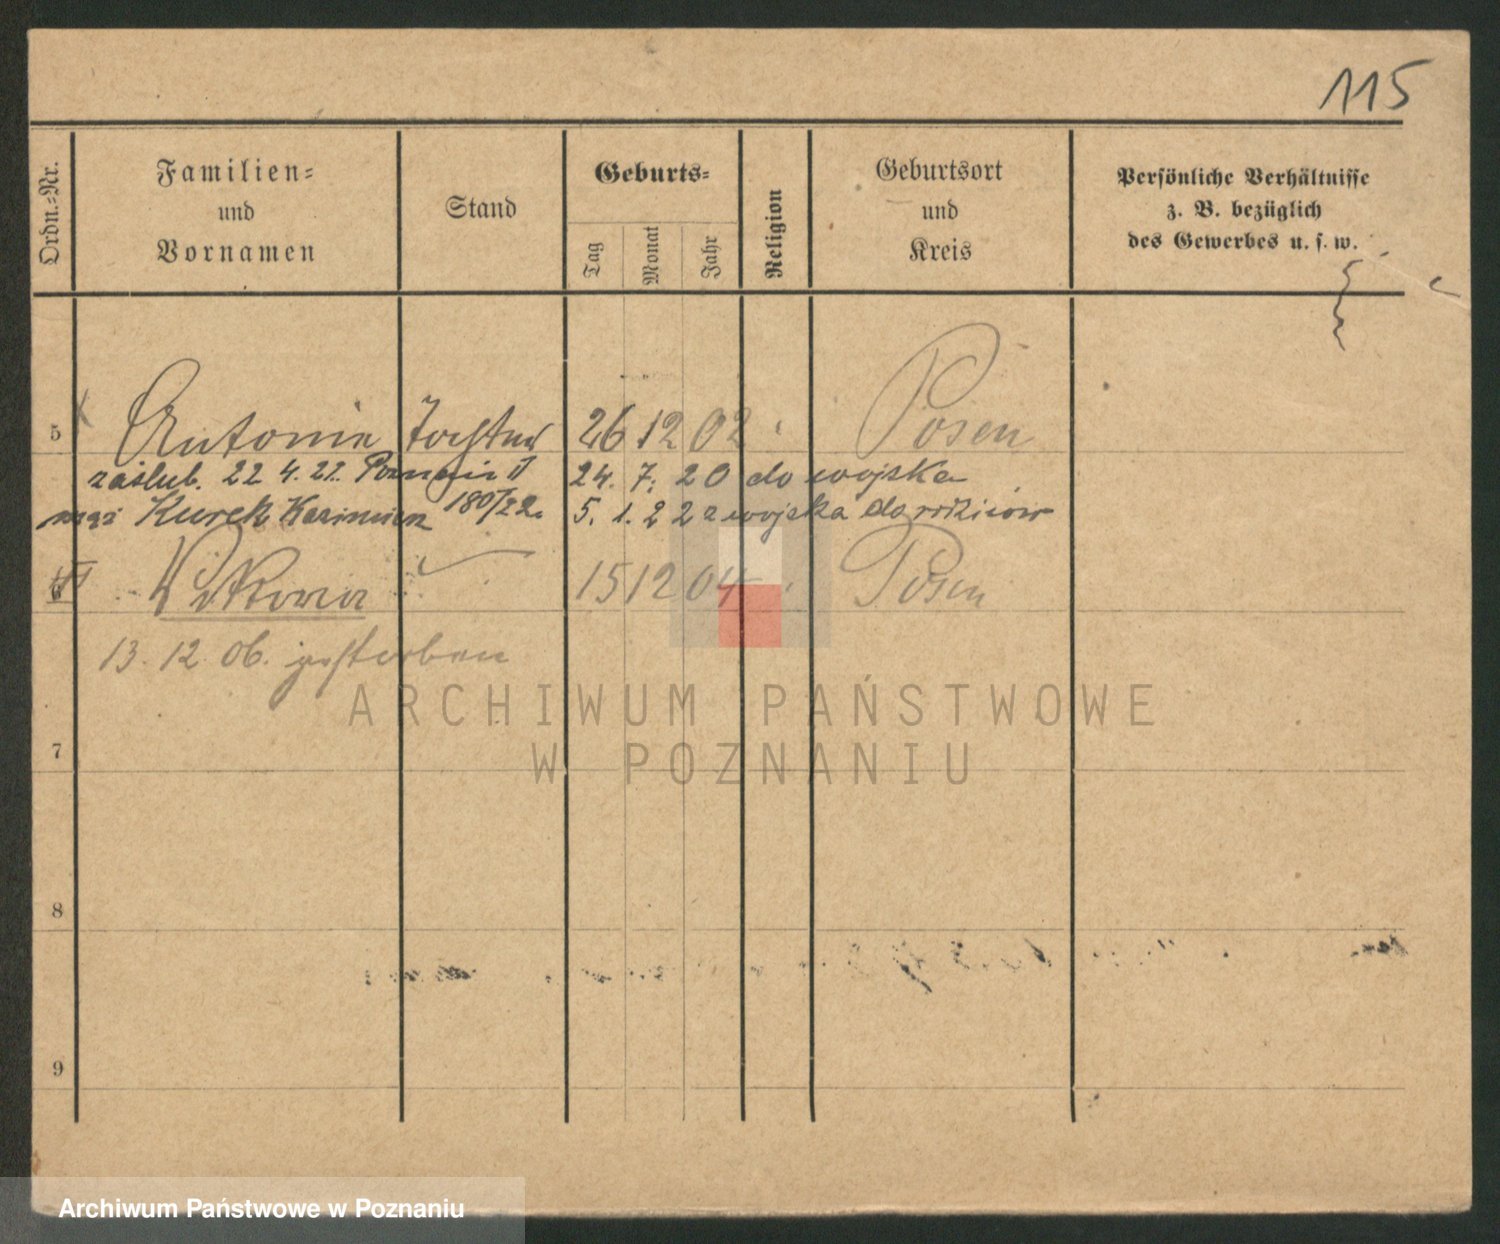 115
Ordn.-Nr.
Familien-
und
Vornamen
Stand
Geburts-
Tag
Monat
Jahr
Religion
Geburtsort
und
Kreis
Persönliche Verhältnisse
z. B. bezüglich
des Gewerbes u. s. w.
5 Antonie Tochter 26 12 02 Posen
zaślub. 22 4. 22. Poznań II 24. 7. 20 do wojska
mąż Kurek Kazimierz 180/22. 5. 1. 22 z wojska do rodziców
6 Viktoria 15 12 04 Posen
13. 12 06. gestorben
7
8
9
ARCHIWUM PAŃSTWOWE
W POZNANIU
Archiwum Państwowe w Poznaniu